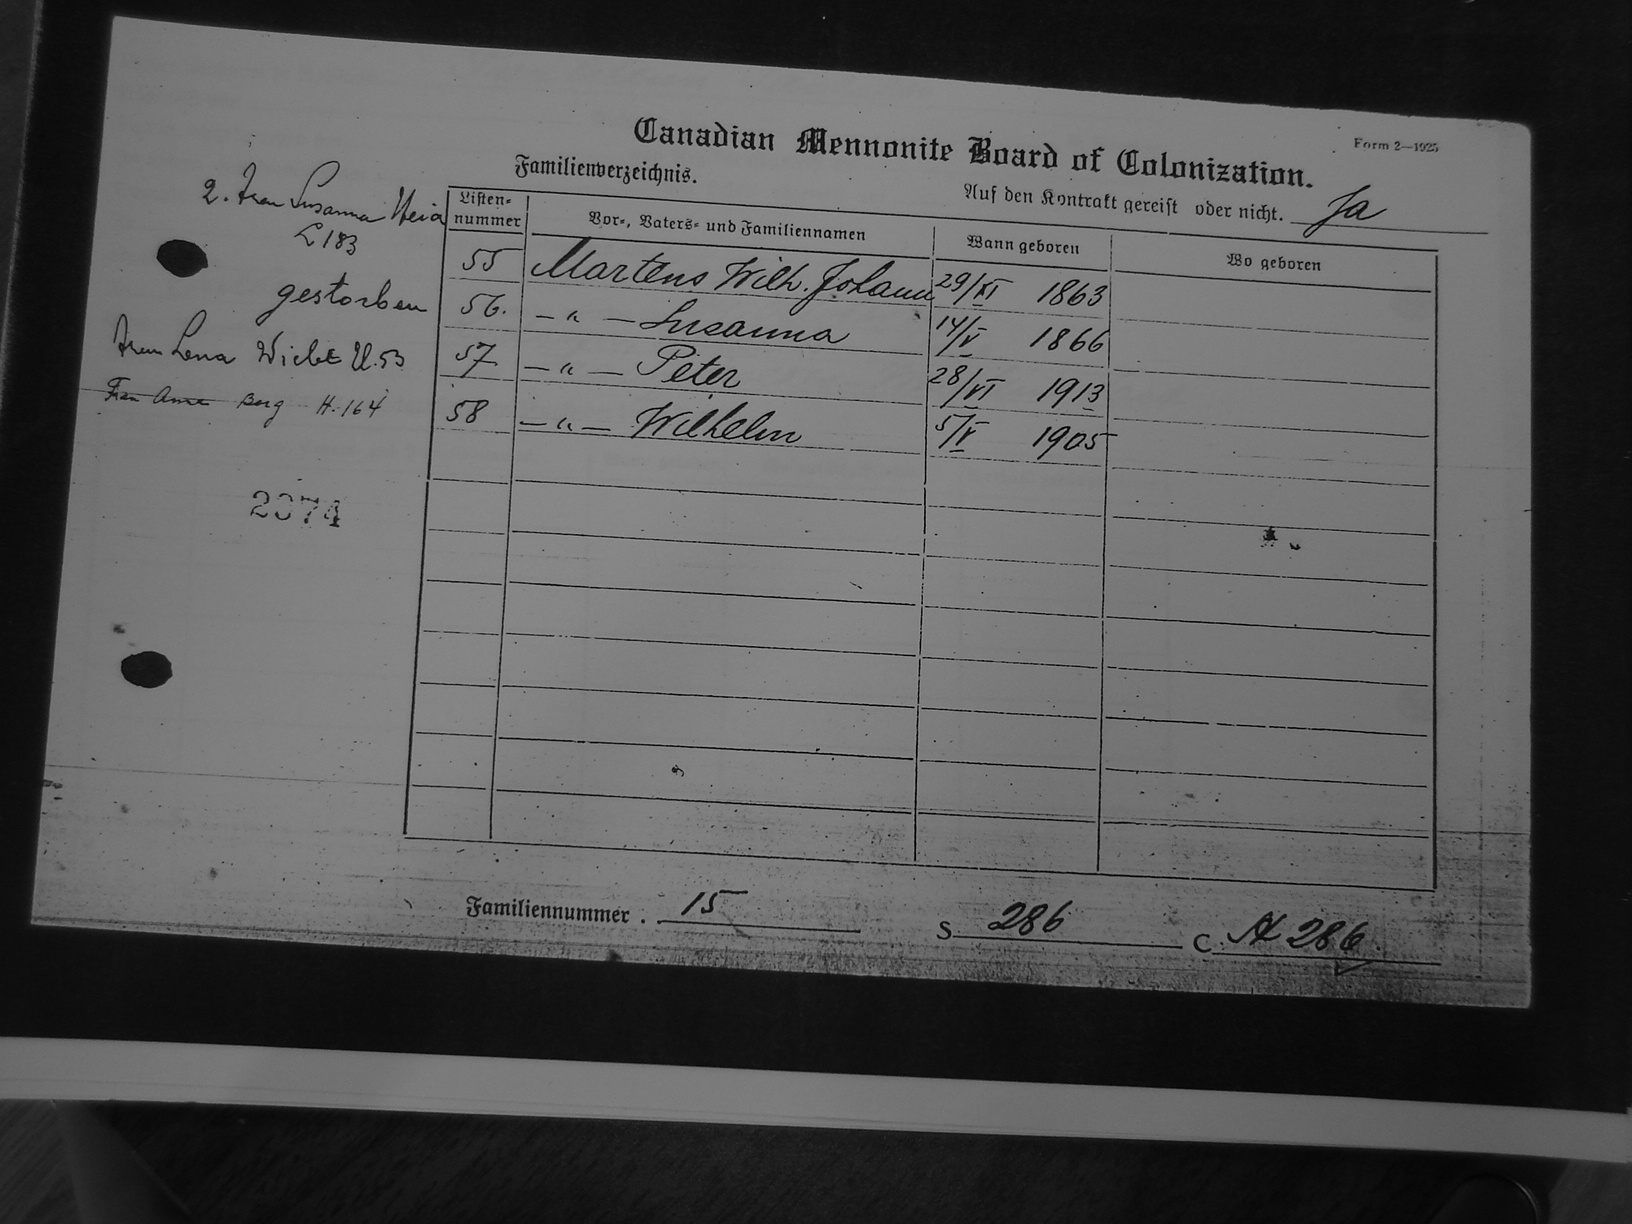 Canadian Mennonite Board of Colonization.
Form 2—1925
Familienverzeichnis.
Auf den Kontrakt gereist oder nicht. Ja
Listen-nummer Vor-, Vaters- und Familiennamen Wann geboren Wo geboren
55 Martens Wilh. Johann 29/XI 1863
56. — " — Susanna 14/V 1866
57 — " — Peter 28/VI 1913
58 — " — Wilhelm 5/V 1905
2. Frau Susanna
L 183
gestorben
Frau Lena Wiebe U.53
Frau Anna Berg H.164
2074
Familiennummer . 15
S 286
C. A 286